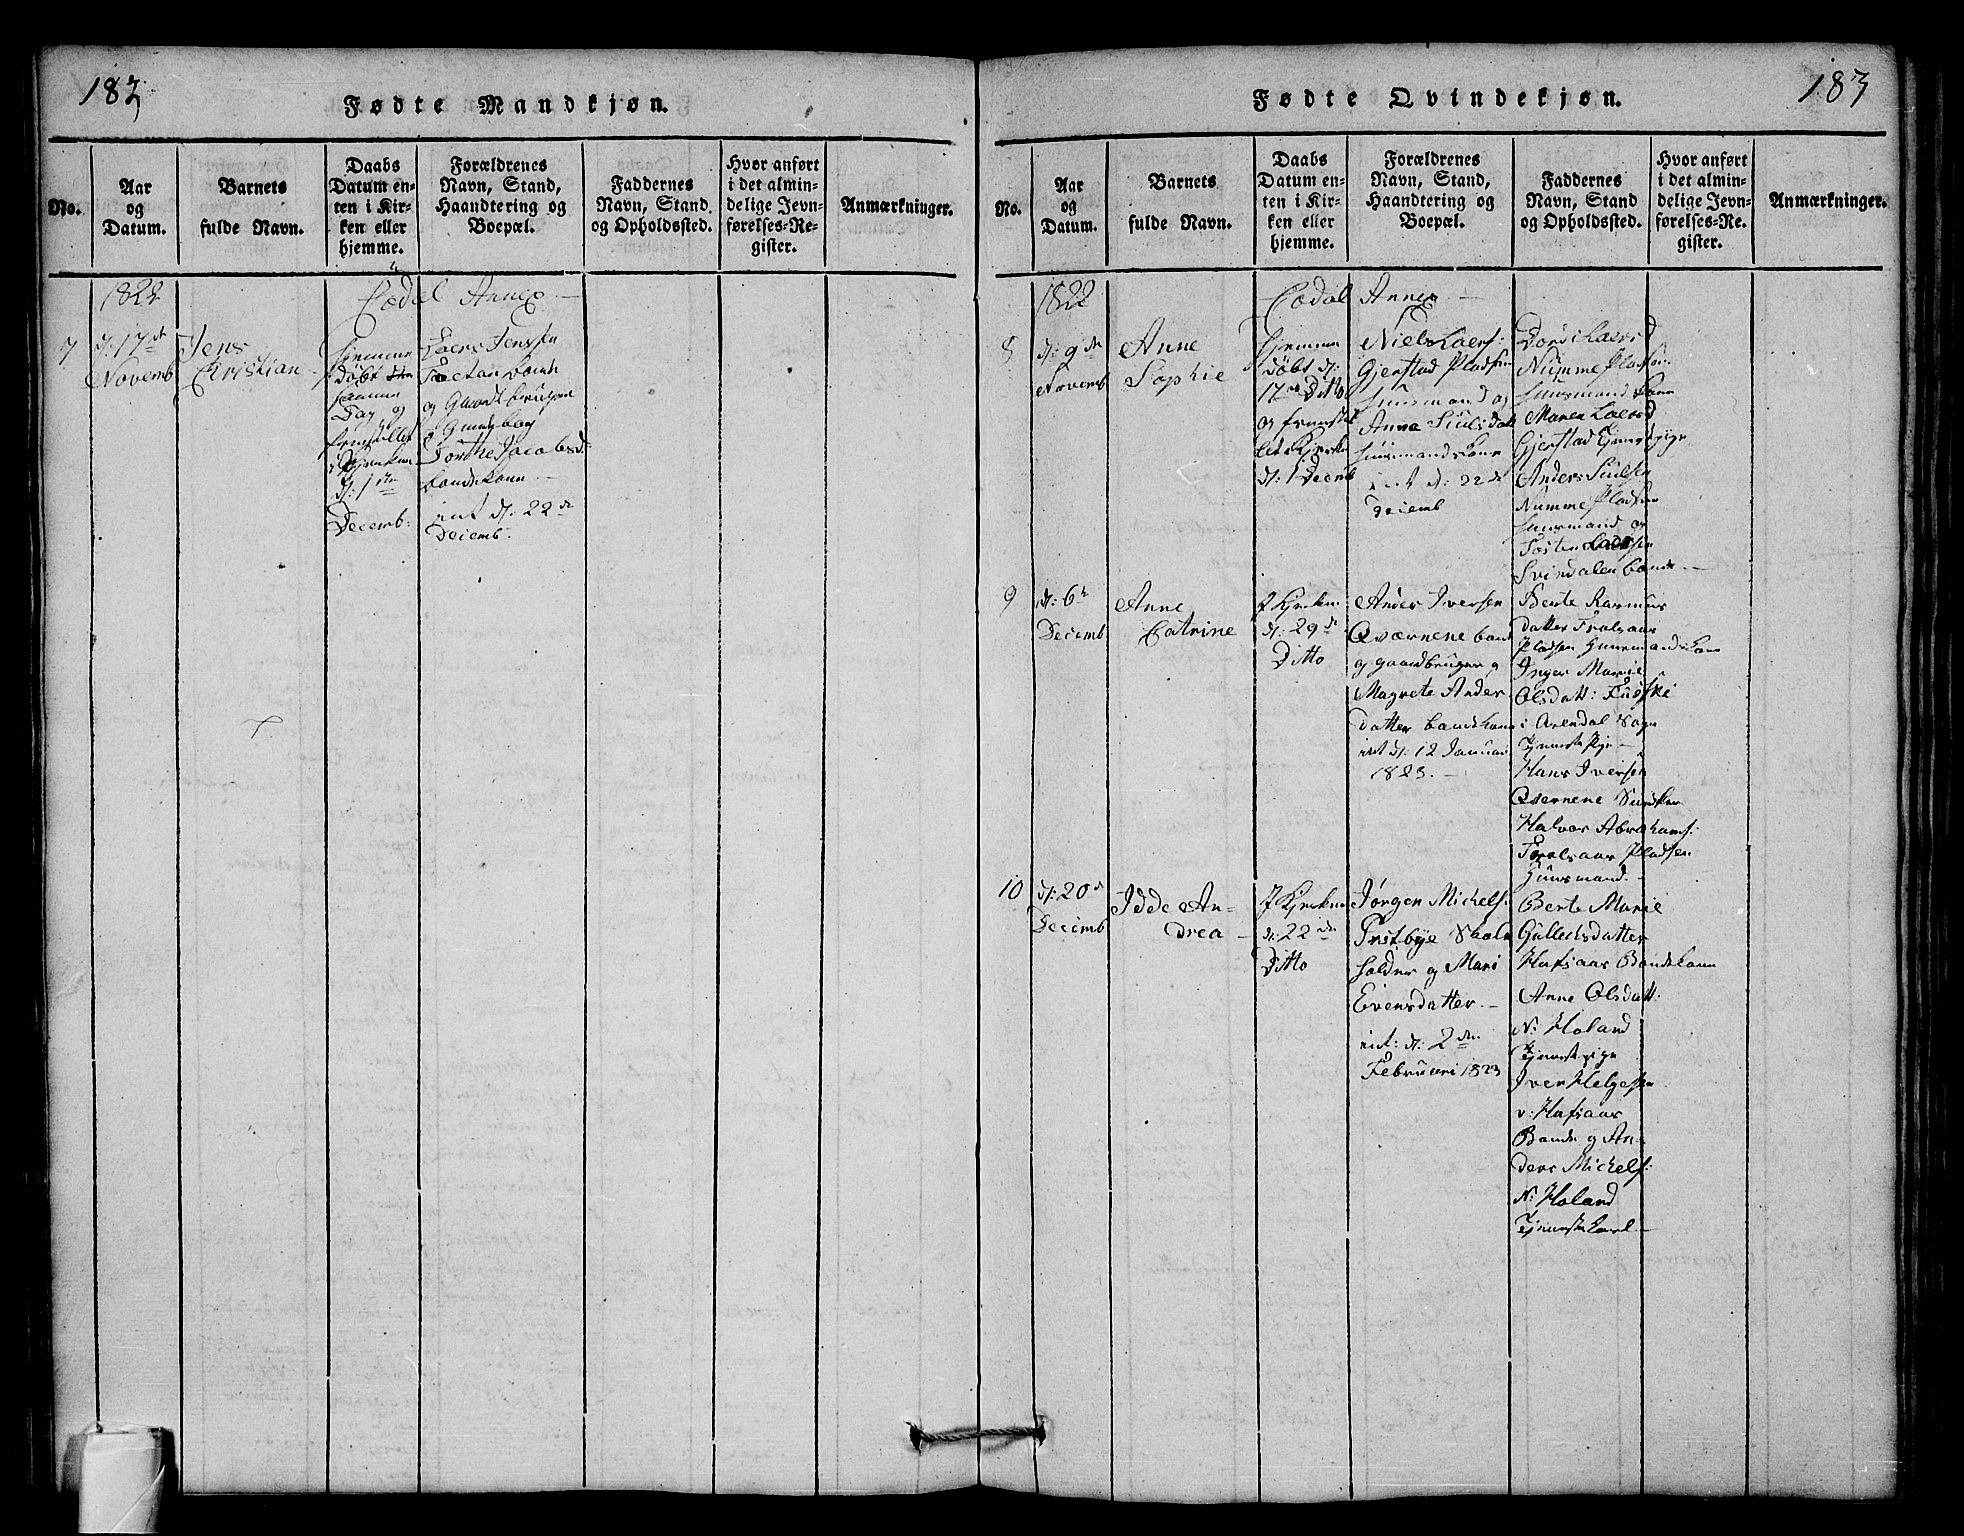 183
Fødte Mandkjøn.
No.
Aar
og
Datum.
Barnets
fulde Navn.
Daabs
Datum en-
ten i Kir-
ken eller
hjemme.
Forældrenes
Navn, Stand,
Haandtering og
Boepæl.
Faddernes
Navn, Stand
og Opholdssted.
Hvor anført
i det almin-
delige Jevn-
førelses-Re-
gister.
Anmærkninger.
1822
Annex
7
d: 17de
Novemb
Jens
Christian
hjemme
døbt
samme
Dag og
fremstillet
i Kirken
d: 1ste
Decemb:
Laers Jenssen
og Gaardbruger
Jacobsd:
bondekone
int d: 22de
Decemb.
183
Fødte Qvindekjøn.
No.
Aar
og
Datum.
Barnets
fulde Navn.
Daabs
Datum en-
ten i Kir-
ken eller
hjemme.
Forældrenes
Navn, Stand,
Haandtering og
Boepæl.
Faddernes
Navn, Stand
og Opholdssted.
Hvor anført
i det almin-
delige Jevn-
førelses-Re-
gister.
Anmærkninger.
1822
Annex
8
d: 9de
Novemb
Anne
Sophie
hjemme
døbt d:
17de Ditto
og fremstil
let i Kirken
d: 1 Decemb
Niels Laers:
Gjerstad Pladsen
huusmand og
Anne
huusmandskone
int d: 22de
Decemb
Laersd
Numme Pladsen
huusmands Kone
Maren Laersd
Gjerstad tjenestpige
Anders
Numme Pladsen
huusmand og
Tosten Laersen
Svindalen bonde
9
d: 6te
Decemb
Anne
Catrine
J Kirken
d: 29de
Ditto
Anders Iversen
Qværnene bonde
og gaardbruger og
Magrete Anders
datter bondekone
int d: 12 Januari
1823.
Berte Rasmus
datter
Pladsen Huusmandskone
Inger Marie
Olsdatt:
i Arendal Sogn
tjenestepige
Hans Iversen
Qværnene
Halvor Abrahams:
Pladsen
Huusmand
10
d: 20de
Decemb
Idde An-
drea
J Kirken
d: 22de
Ditto
Jørgen Michels:
Skole
holder og Mari
Evensdatter
int: d: 2den
Februari 1823
Berte Marie
Gulleksdatter
Hafsaas Bondekone
Anne Olsdatt:
N: Holand
Tjenestpige
Iver Helgesen
v: Hafsaas
Bonde og An-
ders Michels:
N: Holand
Tjenestekarl